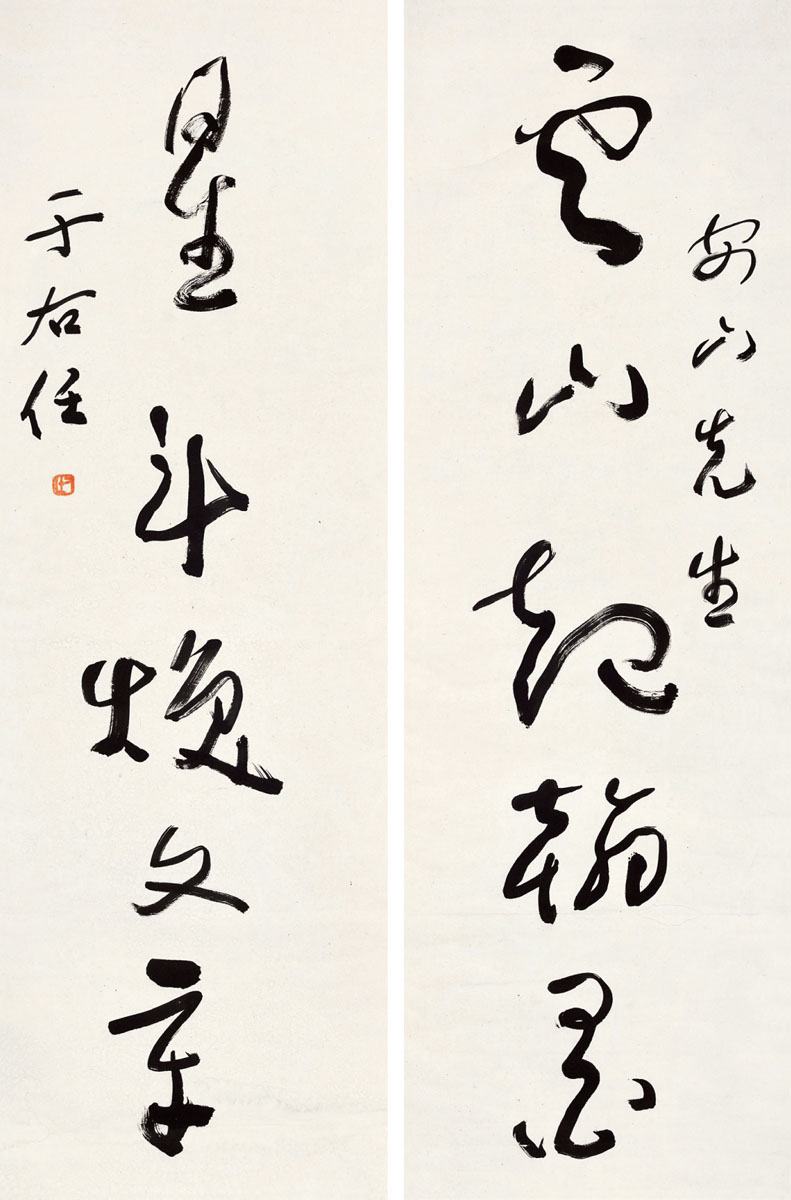 山先生
雲山起翰墨
星斗煥文章
于右任